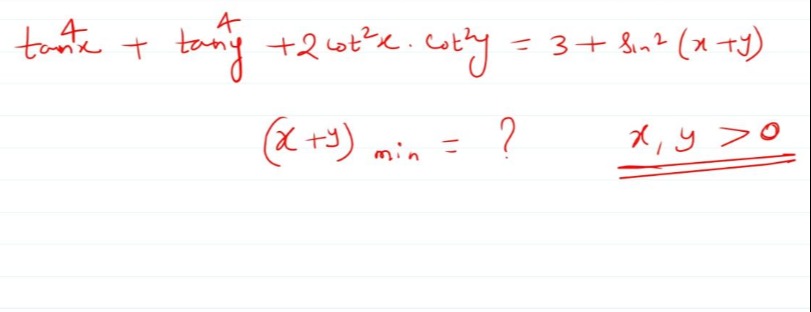 tan⁴x + tan⁴y + 2cot²x . cot²y = 3 + sin²(x+y)
(x+y) min = ? x, y > 0